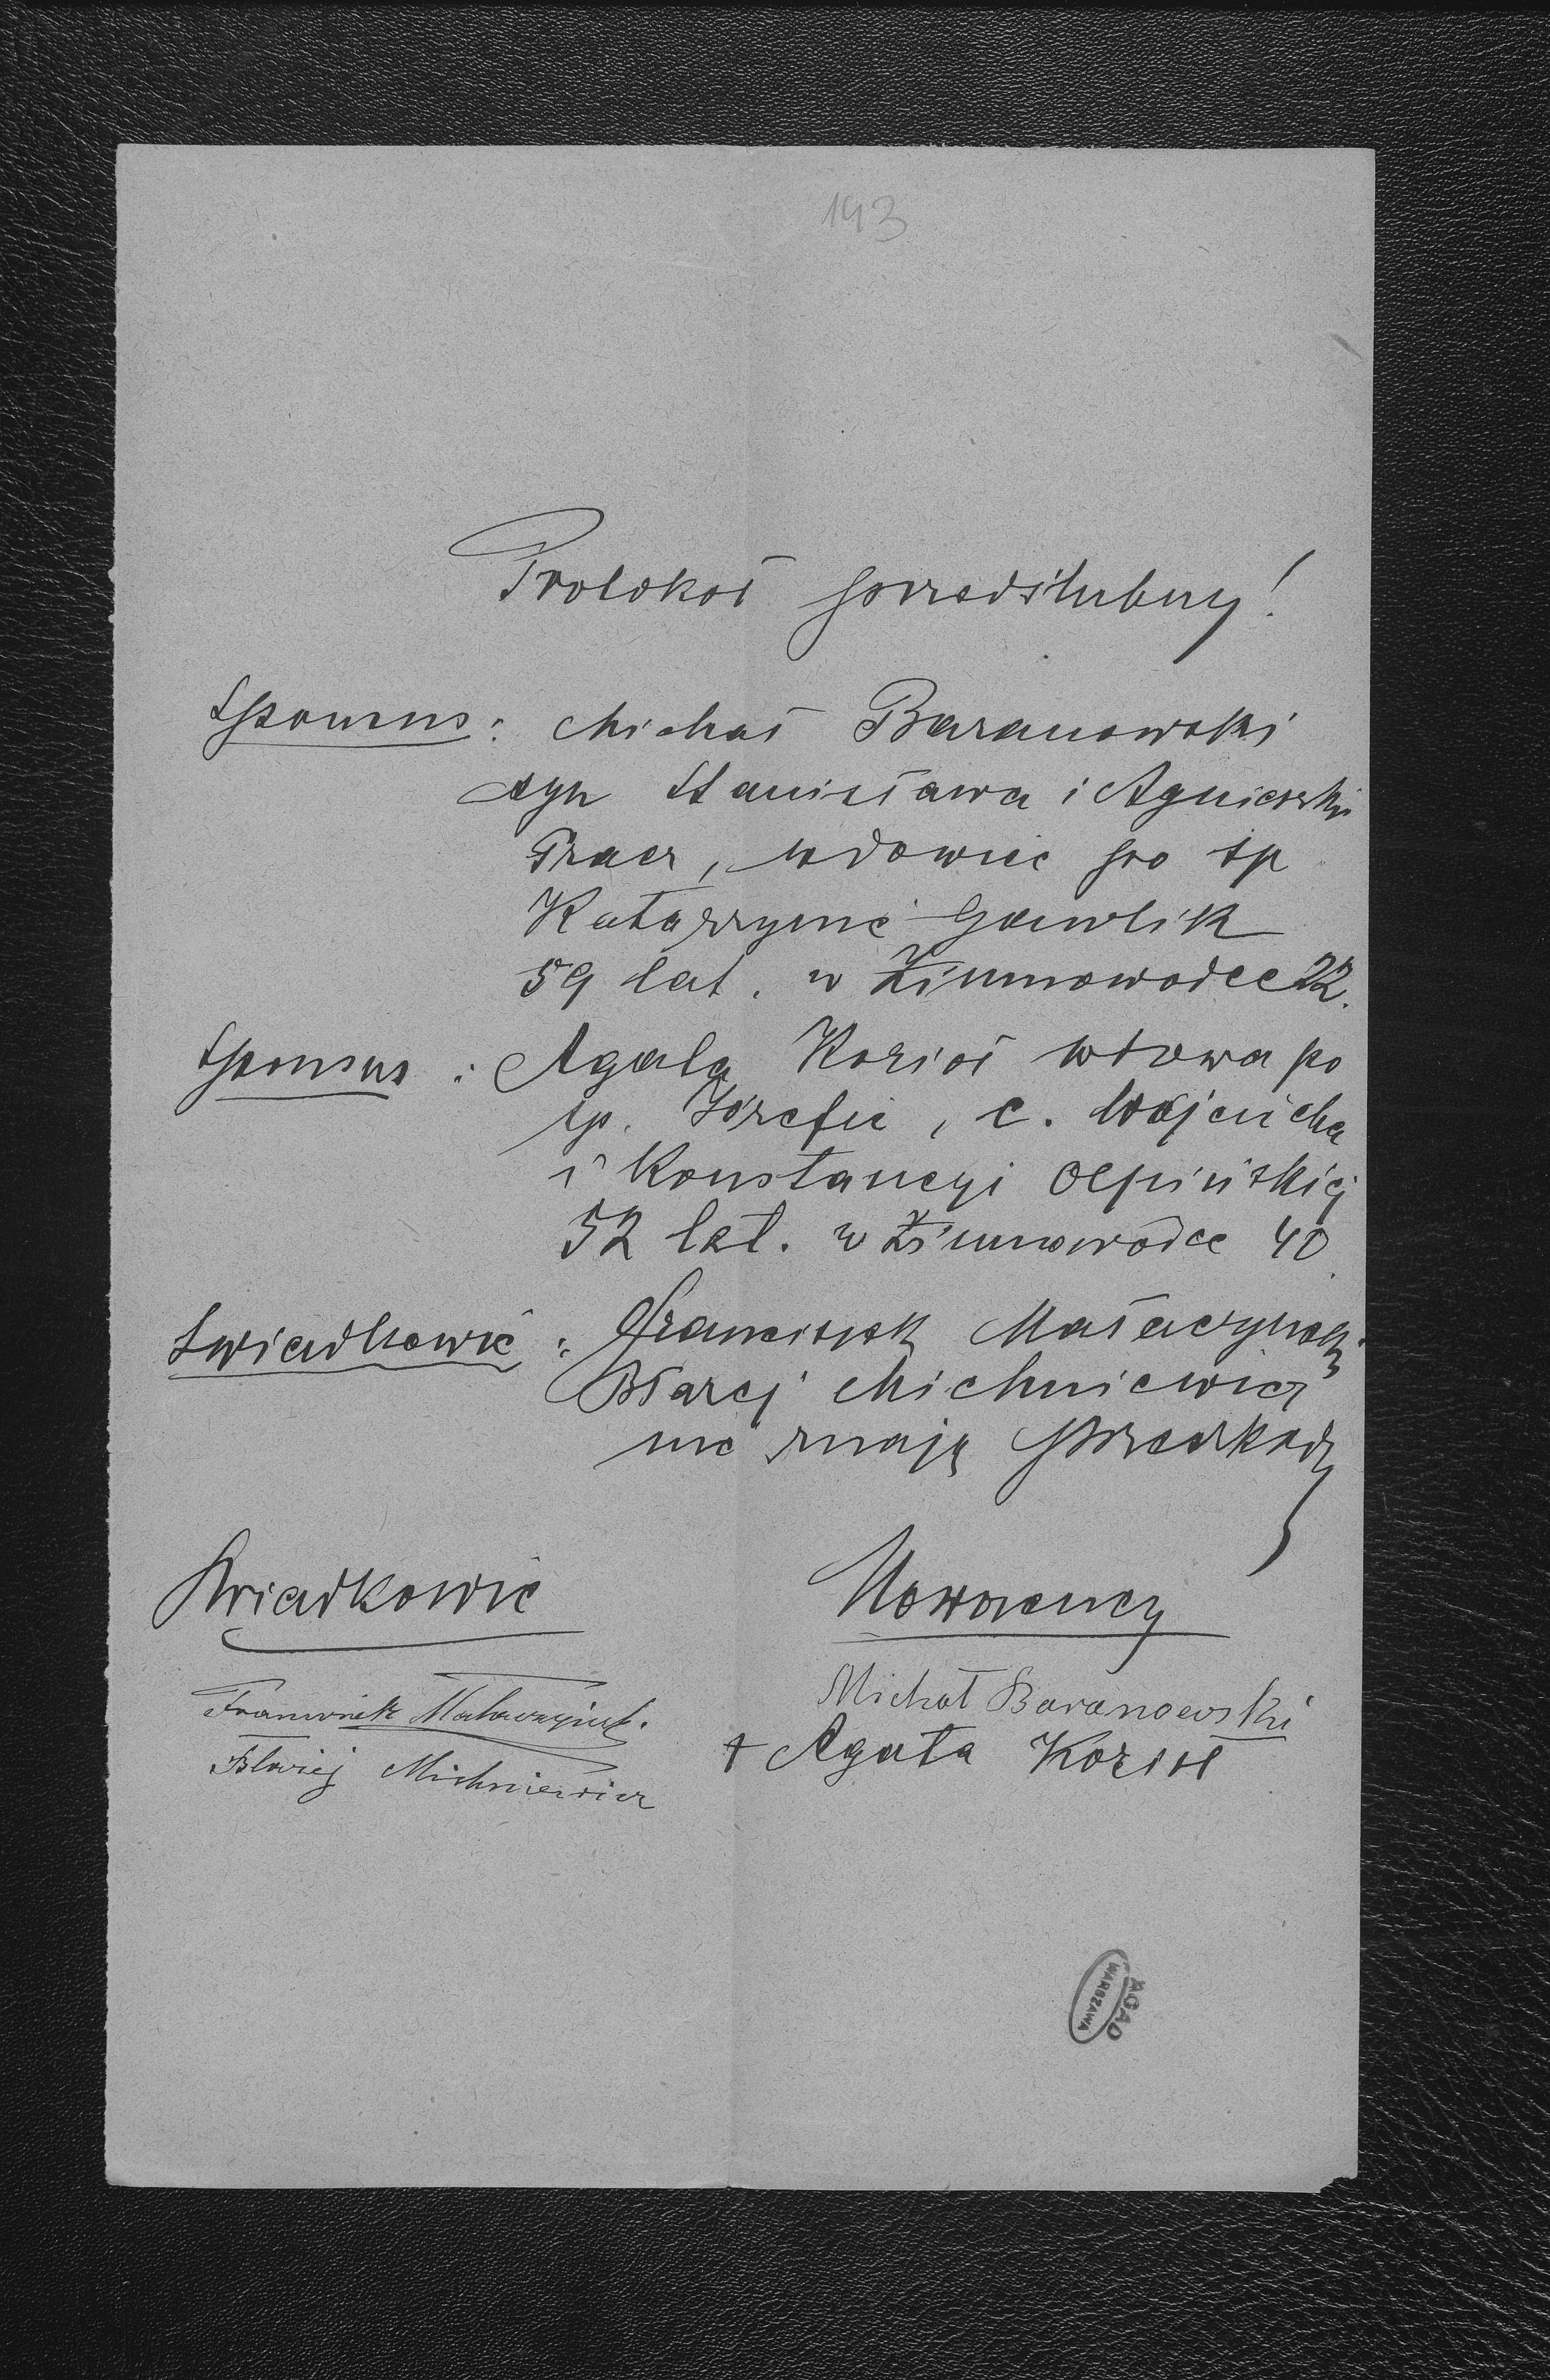 193
Protokół przedślubny!
Sponsus: Michał Baranowski
syn Stanisława i Agnieszki
Pracz, wdowiec po śp
Katarzynie Gawlik
59 lat. w Zimnowodce 22.
Sponsus: Agata Kozioł wdowa po
śp. Józefie, c. Wojciecha
i Konstancyi Olpińskiej
52 lat. w Zimnowódce 40.
Swiadkowie: Franciszek Małaczyński
Błażej Michniewicz
nie znają przeszkody
Swiadkowie
Nowożeńcy
Franciszek Małaczyńsk.
Błażej Michniewicz
Michał Baranowski
+ Agata Kozioł
AGAD
WARSZAWA